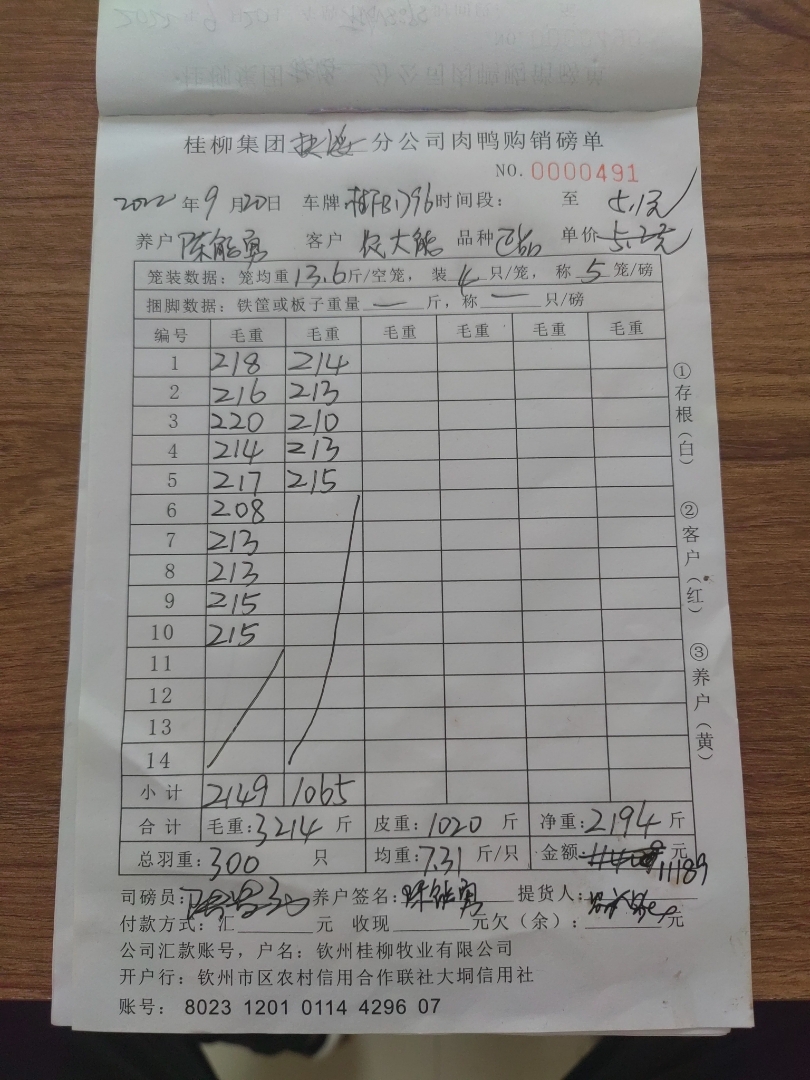 桂柳集团 分公司肉鸭购销磅单
NO. 0000491
2022年9月20日 车牌 时间段: 至 5.1元
养户 陈能勇 客户 大能 品种 单价 5.2元
笼装数据: 笼均重13.6斤/空笼, 装4只/笼, 称5笼/磅
捆脚数据: 铁筐或板子重量一斤, 称一只/磅
编号 毛重 毛重 毛重 毛重 毛重 毛重
1 218 214
2 216 213
3 220 210
4 214 213
5 217 215
6 208
7 213
8 213
9 215
10 215
11
12
13
14
小计 2149 1065
合计 毛重:3214斤 皮重:1020斤 净重:2194斤
总羽重:300只 均重:7.31斤/只 金额 元
11189
司磅员: 养户签名:陈能勇 提货人:
付款方式: 汇 元 收现 元欠(余): 元
公司汇款账号, 户名: 钦州桂柳牧业有限公司
开户行: 钦州市区农村信用合作联社大垌信用社
账号: 8023 1201 0114 4296 07
①存根(白)
②客户(红)
③养户(黄)